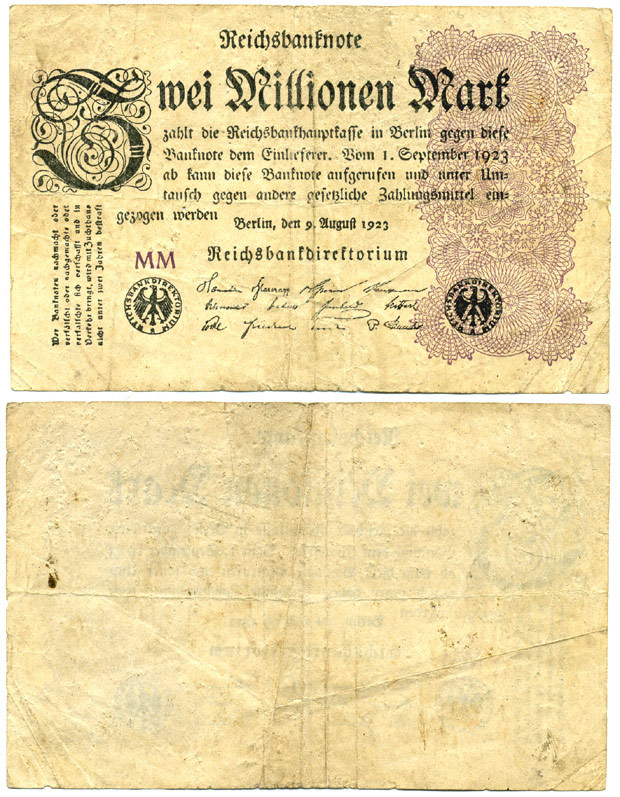 Reichsbanknote
Zwei Millionen Mark
zahlt die Reichsbankhauptkasse in Berlin gegen diese
Banknote dem Einlieferer. Vom 1. September 1923
ab kann diese Banknote aufgerufen und unter Um-
tausch gegen andere gesetzliche Zahlungsmittel ein-
gezogen werden
Berlin, den 9. August 1923
Reichsbankdirektorium
MM
REICHSBANKDIREKTORIUM
REICHSBANKDIREKTORIUM
Wer Banknoten nachmacht oder
verfälscht oder nachgemachte oder
verfälschte sich verschafft und in
Verkehr bringt, wird mit Zuchthaus
nicht unter zwei Jahren bestraft